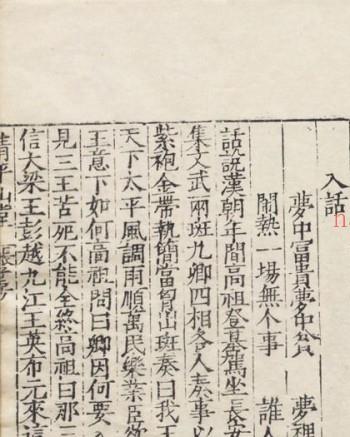 入話
夢中富貴夢中貧 夢裡
鬧熱一場無个事 誰人
話說漢朝年間高祖登基駕坐長安
集文武兩班九卿四相各人奏事以
紫袍金帶執簡當胷出班奏曰我王
天下太平風調雨順萬民樂業臣欲
王意下如何高祖問曰卿因何要入
見三王苦死不能全終高祖曰那三
信大梁王彭越九江王英布元來這
清平山堂 張子房
h